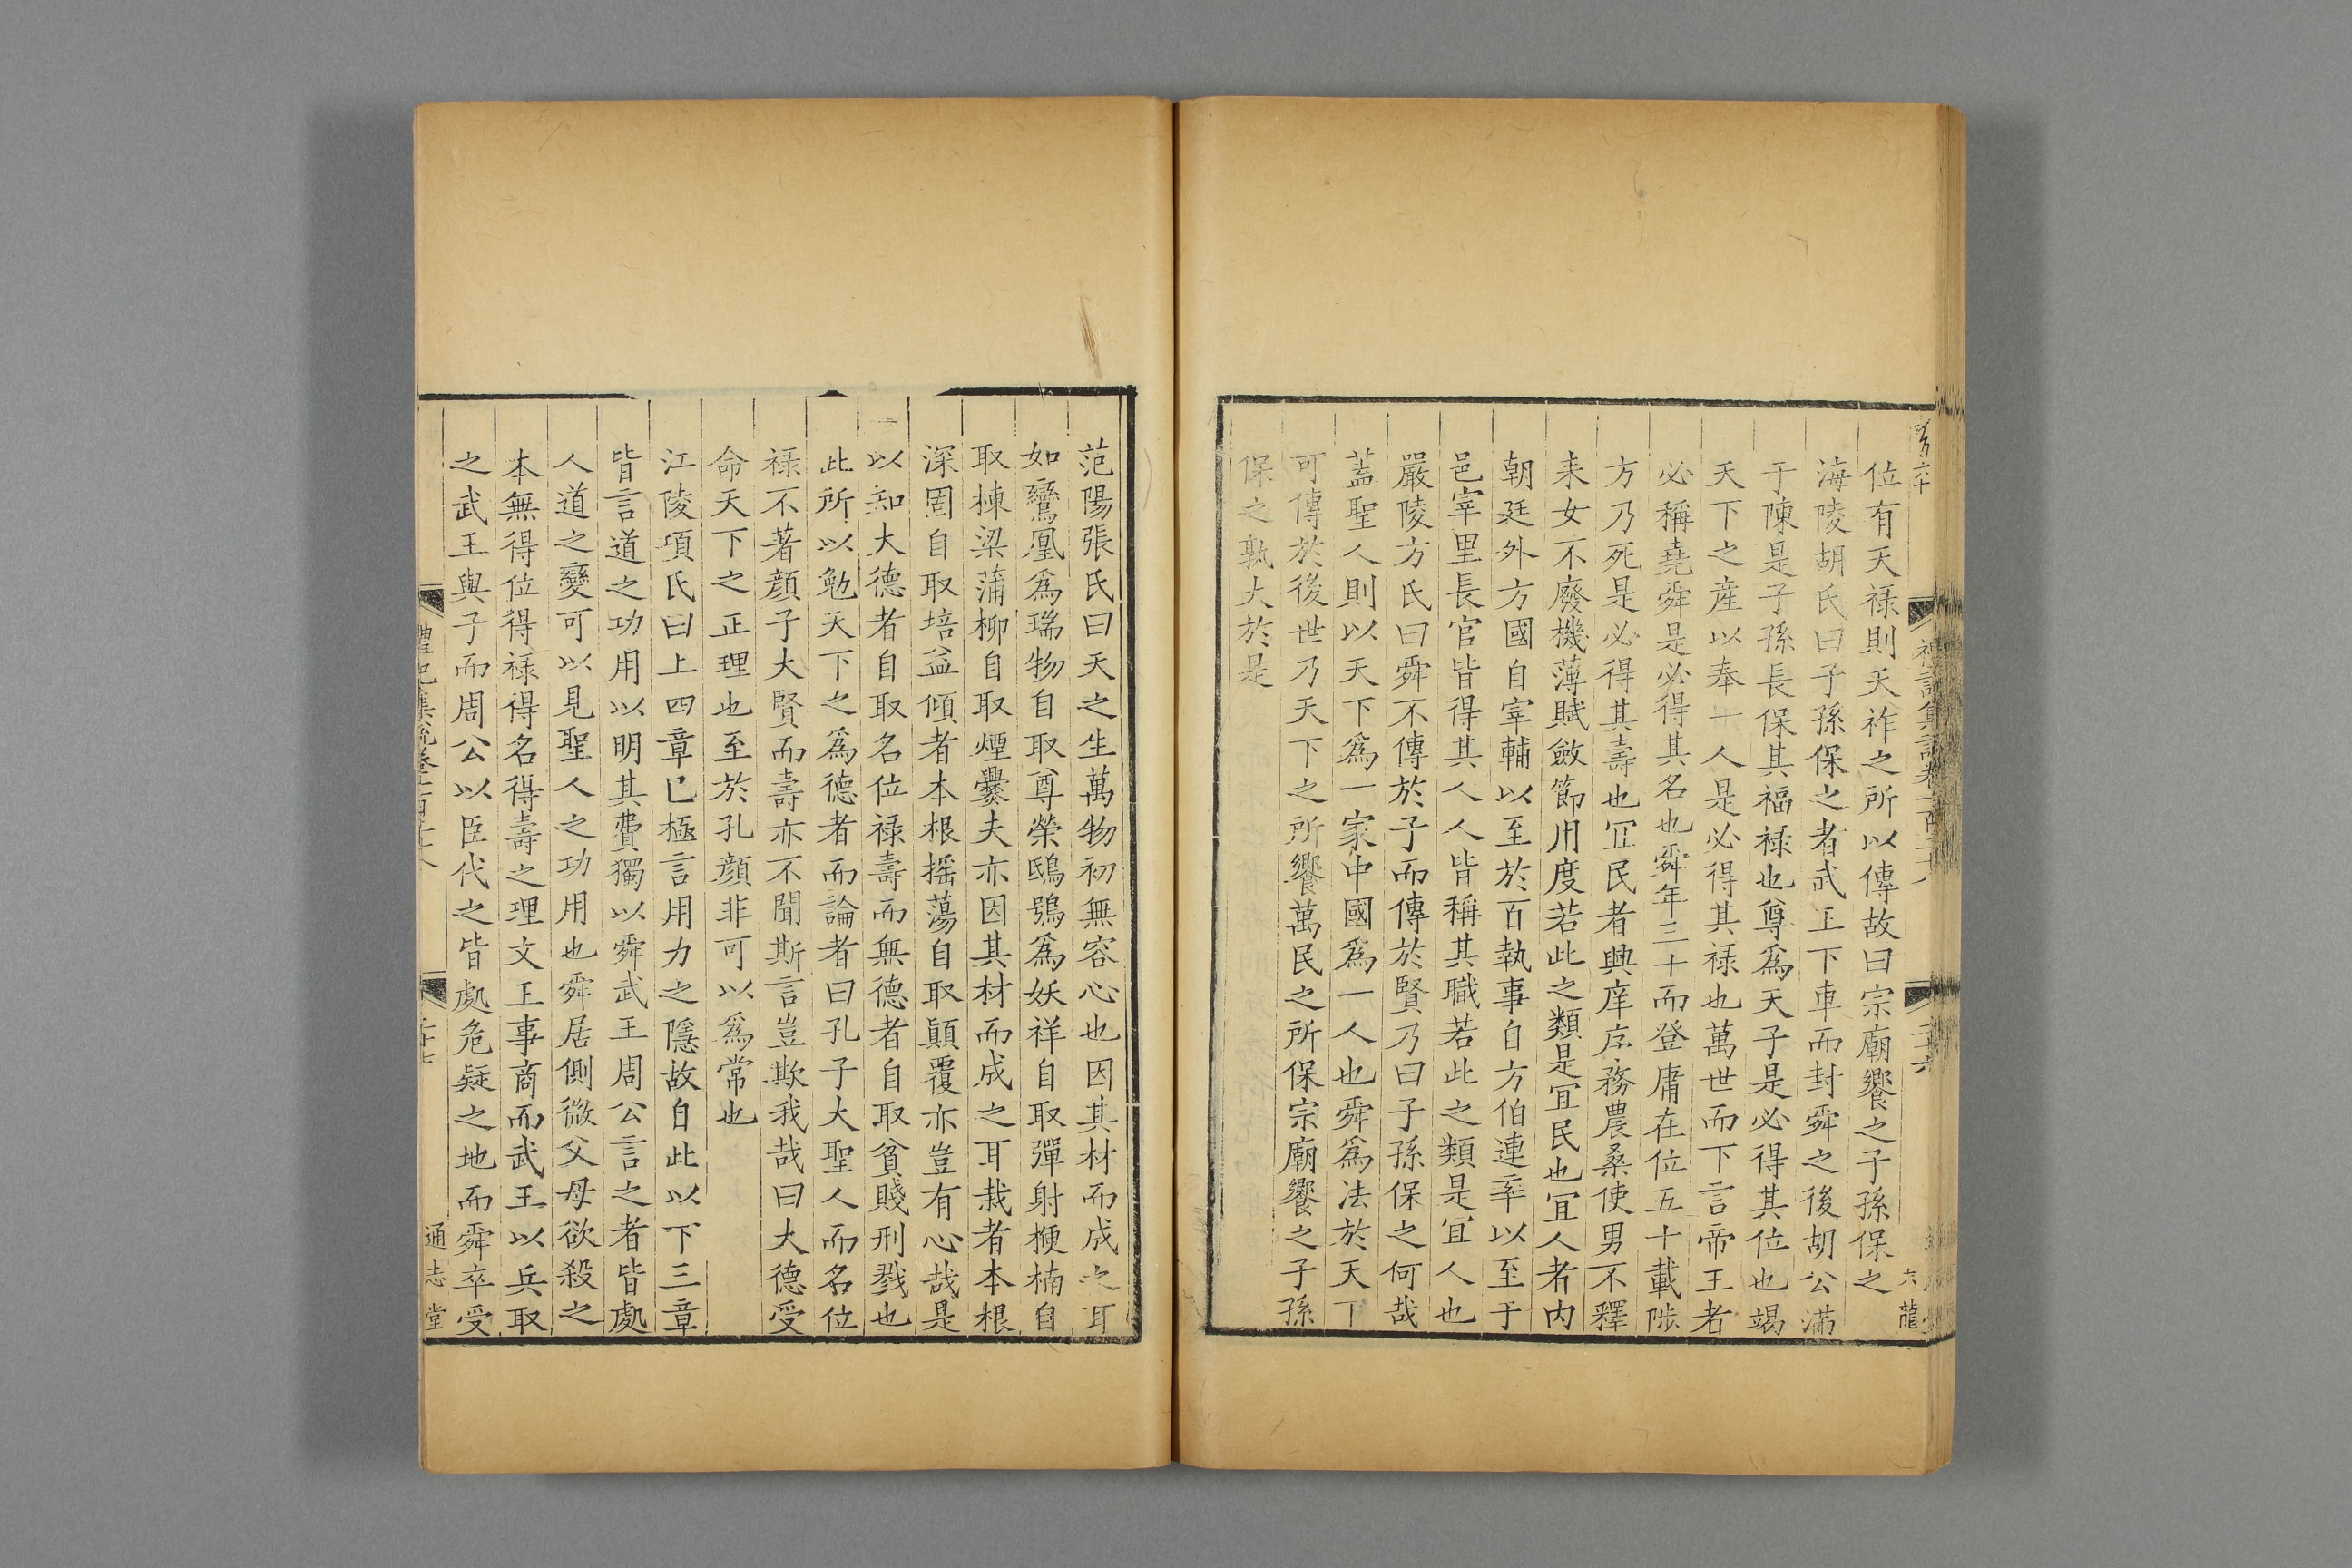 位有天祿則天祚之所以傳故曰宗廟饗之子孫保之
海陵胡氏曰子孫保之者武王下車而封舜之後胡公滿
于陳是子孫長保其福祿也尊爲天子是必得其位也竭
天下之産以奉一人是必得其祿也萬世而下言帝王者
必稱堯舜是必得其名也舜年三十而登庸在位五十載陟
方乃死是必得其壽也冝民者興庠序務農桑使男不釋
耒女不廢機薄賦斂節用度若此之類是冝民也冝人者内
朝廷外方國自宰輔以至於百執事自方伯連率以至于
邑宰里長官皆得其人人皆稱其職若此之類是冝人也
嚴陵方氏曰舜不傳於子而傳於賢乃曰子孫保之何哉
蓋聖人則以天下爲一家中國爲一人也舜爲法於天下
可傳於後世乃天下之所饗萬民之所保宗廟饗之子孫
保之孰大於是
范陽張氏曰天之生萬物初無容心也因其材而成之耳
如鸞凰爲瑞物自取尊榮鴟鴞爲妖祥自取彈射楩楠自
取棟梁蒲柳自取煙爨夫亦因其材而成之耳栽者本根
深固自取培益傾者本根摇蕩自取顛覆亦豈有心哉是
以知大德者自取名位祿壽而無德者自取貧賤刑戮也
此所以勉天下之爲德者而論者曰孔子大聖人而名位
祿不著顏子大賢而壽亦不聞斯言豈欺我哉曰大德受
命天下之正理也至於孔顏非可以爲常也
江陵項氏曰上四章已極言用力之隱故自此以下三章
皆言道之功用以明其費獨以舜武王周公言之者皆處
人道之變可以見聖人之功用也舜居側微父母欲殺之
本無得位得祿得名得壽之理文王事商而武王以兵取
之武王與子而周公以臣代之皆處危疑之地而舜卒受
禮記集說卷一百二十八
二十七
通志堂